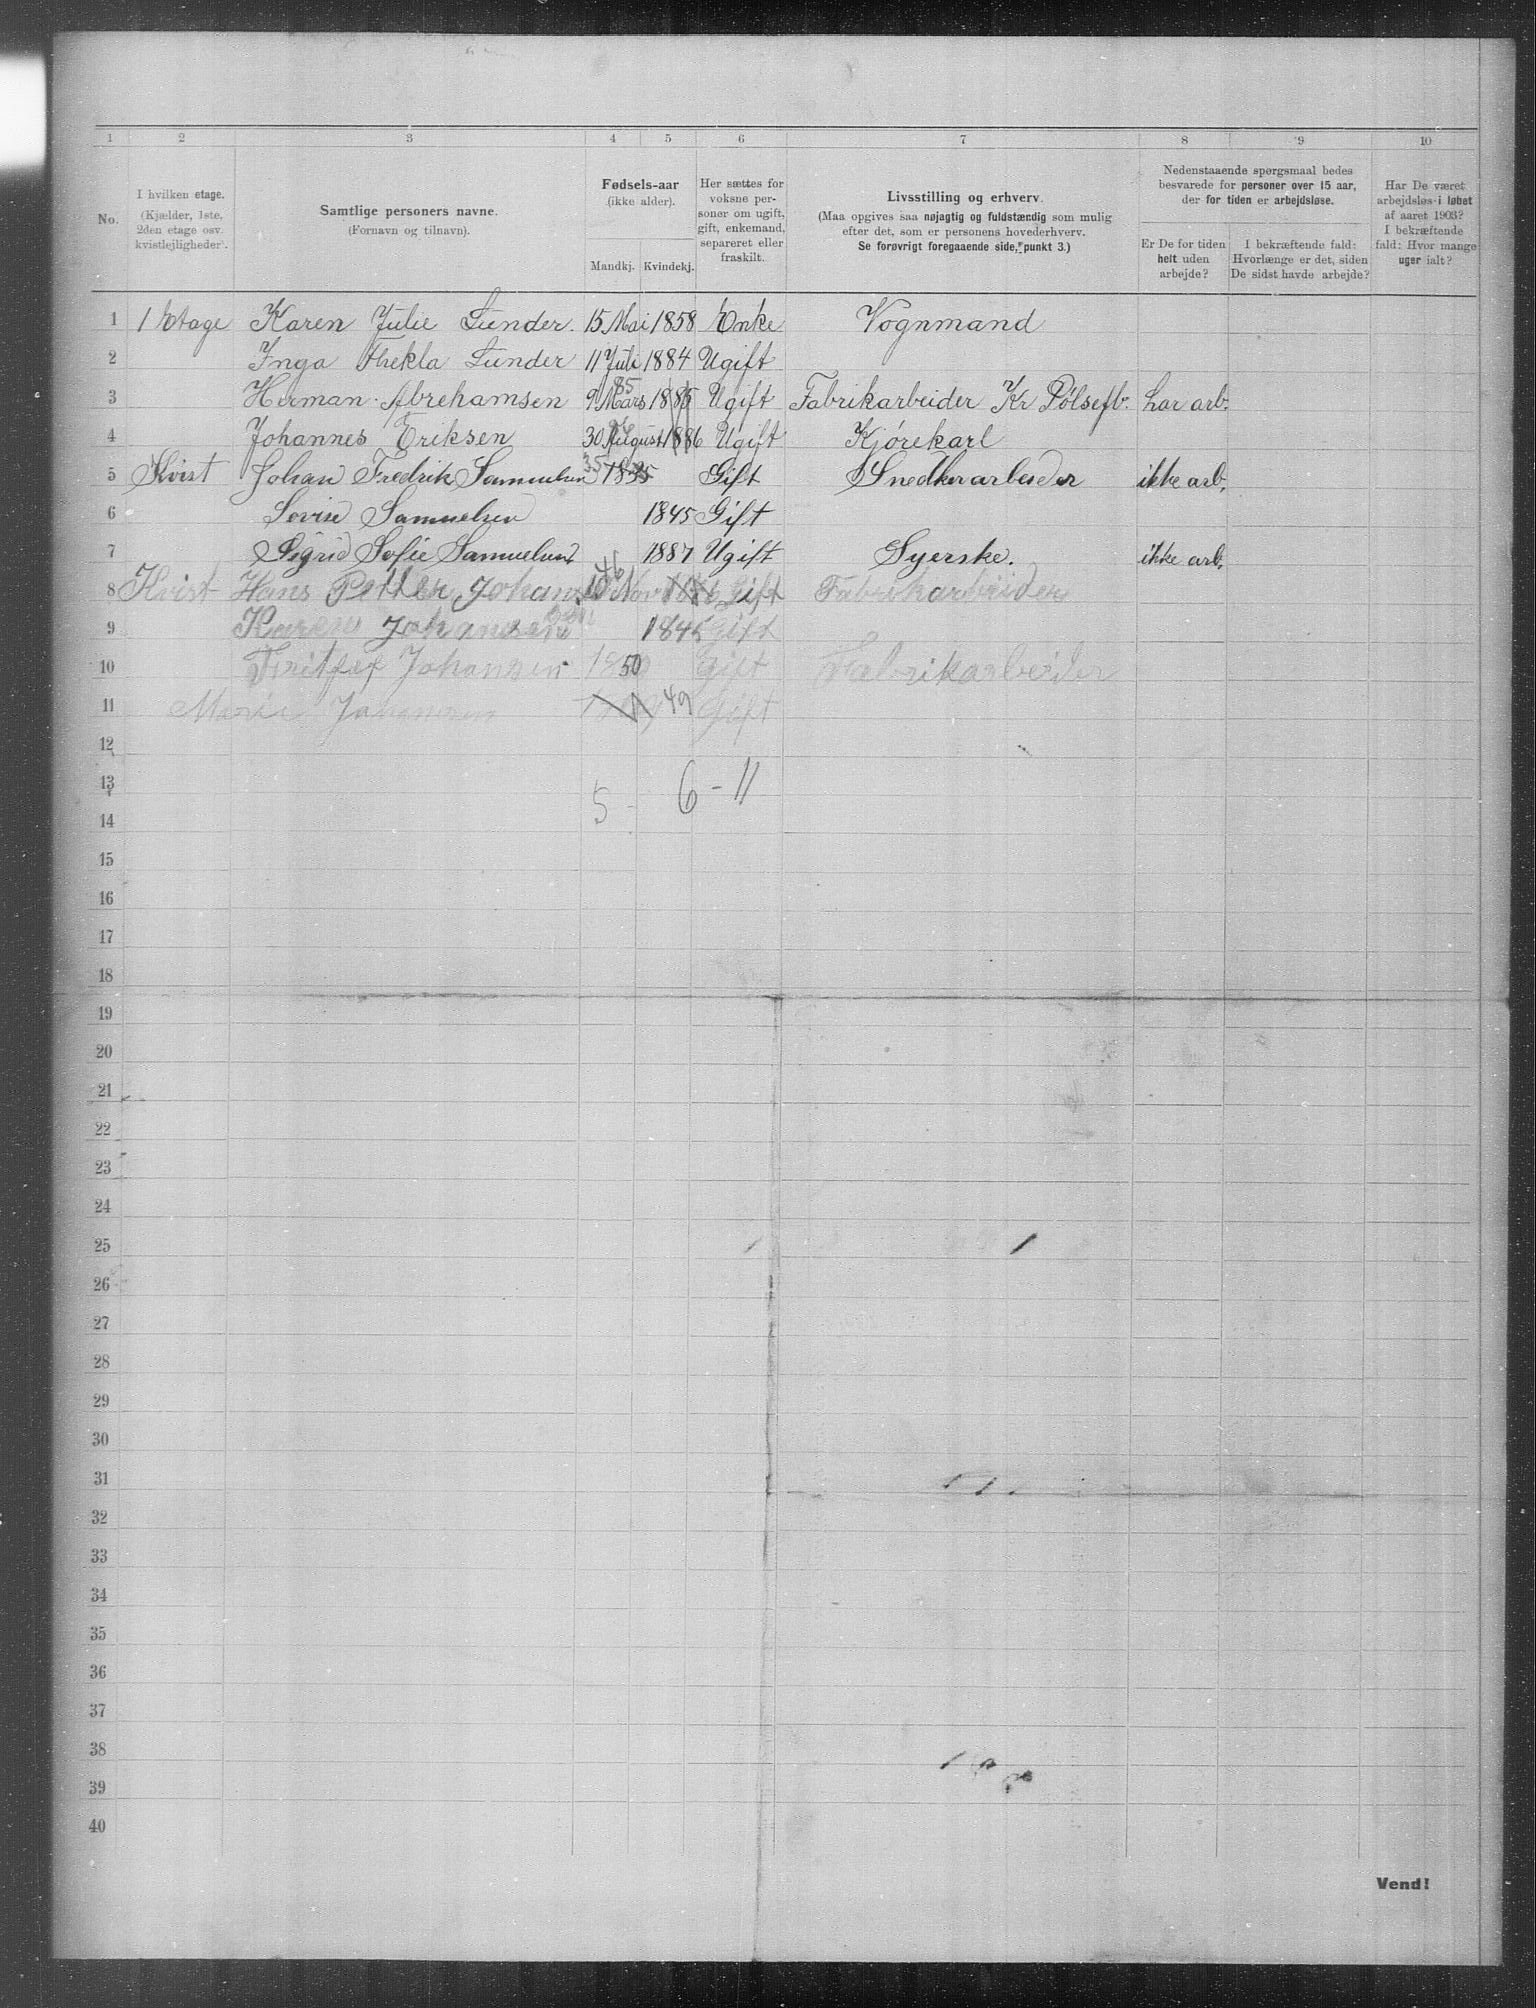 1 2 3 4 5 6 7 8 9 10
No.
I hvilken etage.
(Kjælder, 1ste,
2den etage osv.
kvistlejligheder).
Samtlige personers navne.
(Fornavn og tilnavn).
Fødsels-aar
(ikke alder).
Mandkj. Kvindekj.
Her sættes for
voksne per-
soner om ugift,
gift, enkemand,
separeret eller
fraskilt.
Livsstilling og erhverv.
(Maa opgives saa nøjagtig og fuldstændig som mulig
efter det, som er personens hovederhverv.
Se forøvrigt foregaaende side, punkt 3.)
Nedenstaaende spørgsmaal bedes
besvarede for personer over 15 aar,
der for tiden er arbejdsløse.
Er De for tiden
helt uden
arbejde?
I bekræftende fald:
Hvorlænge er det, siden
De sidst havde arbejde?
Har De været
arbejdsløs i løbet
af aaret 1903?
I bekræftende
fald: Hvor mange
uger ialt?
1 1 Etage Karen Julie Lunder. 15 Mai 1858 Enke Vognmand
2 Inga Thekla Lunder 11 Juli 1884 Ugift
3 Herman Abrehamsen 9 Mars 1885 85 Ugift Fabrikarbeider Kr Pølsefb. har arb.
4 Johannes Eriksen 30 August 1886 86 Ugift Kjørekarl
5 Kvist Johan Fredrik Samuelsen 35 1835 Gift Snedkerarbeider ikke arb.
6 Lovise Samuelsen 1845 Gift
7 Sigrid Sofie Samuelsen 1887 Ugift Syerske. ikke arb.
8 Kvist Hans Petter Johansen 10 Nov 46 Gift Fabrikarbeider
9 Karen Johansen 1845 Gift
10 Fritjof Johansen 1850 Gift Fabrikarbeider
11 Marie Johansen 49 Gift
12
13
5 - 6 - 11
14
15
16
17
18
19
20
21
22
23
24
25
26
27
28
29
30
31
32
33
34
35
36
37
38
39
40
Vend!